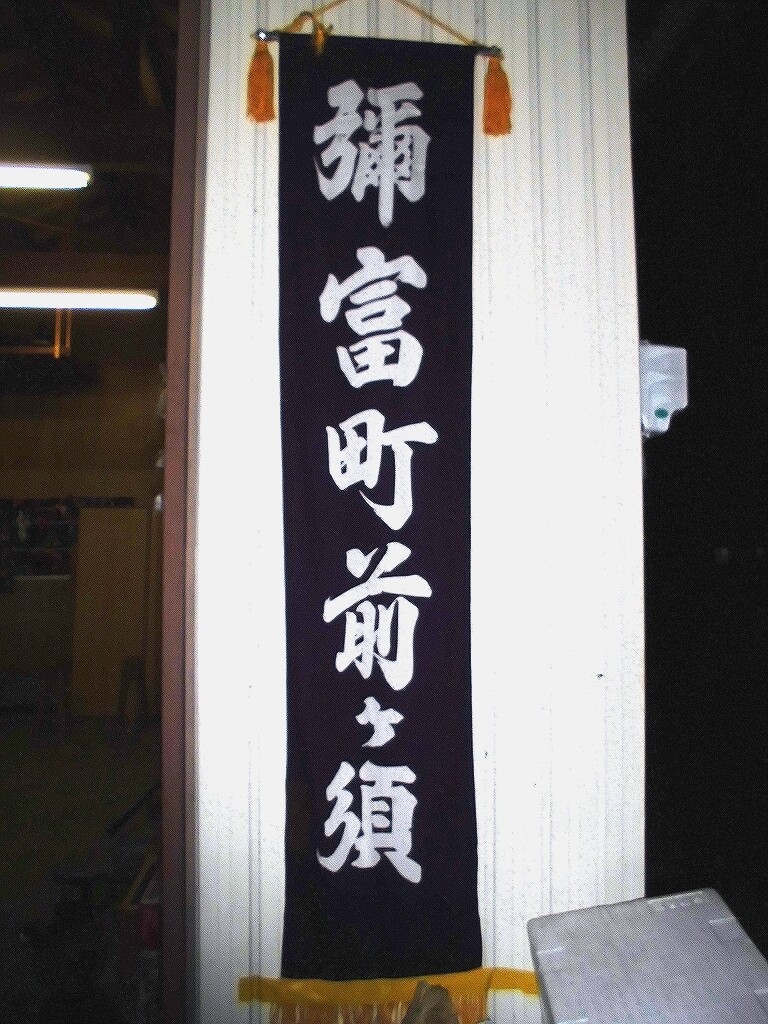 彌富町前ヶ須